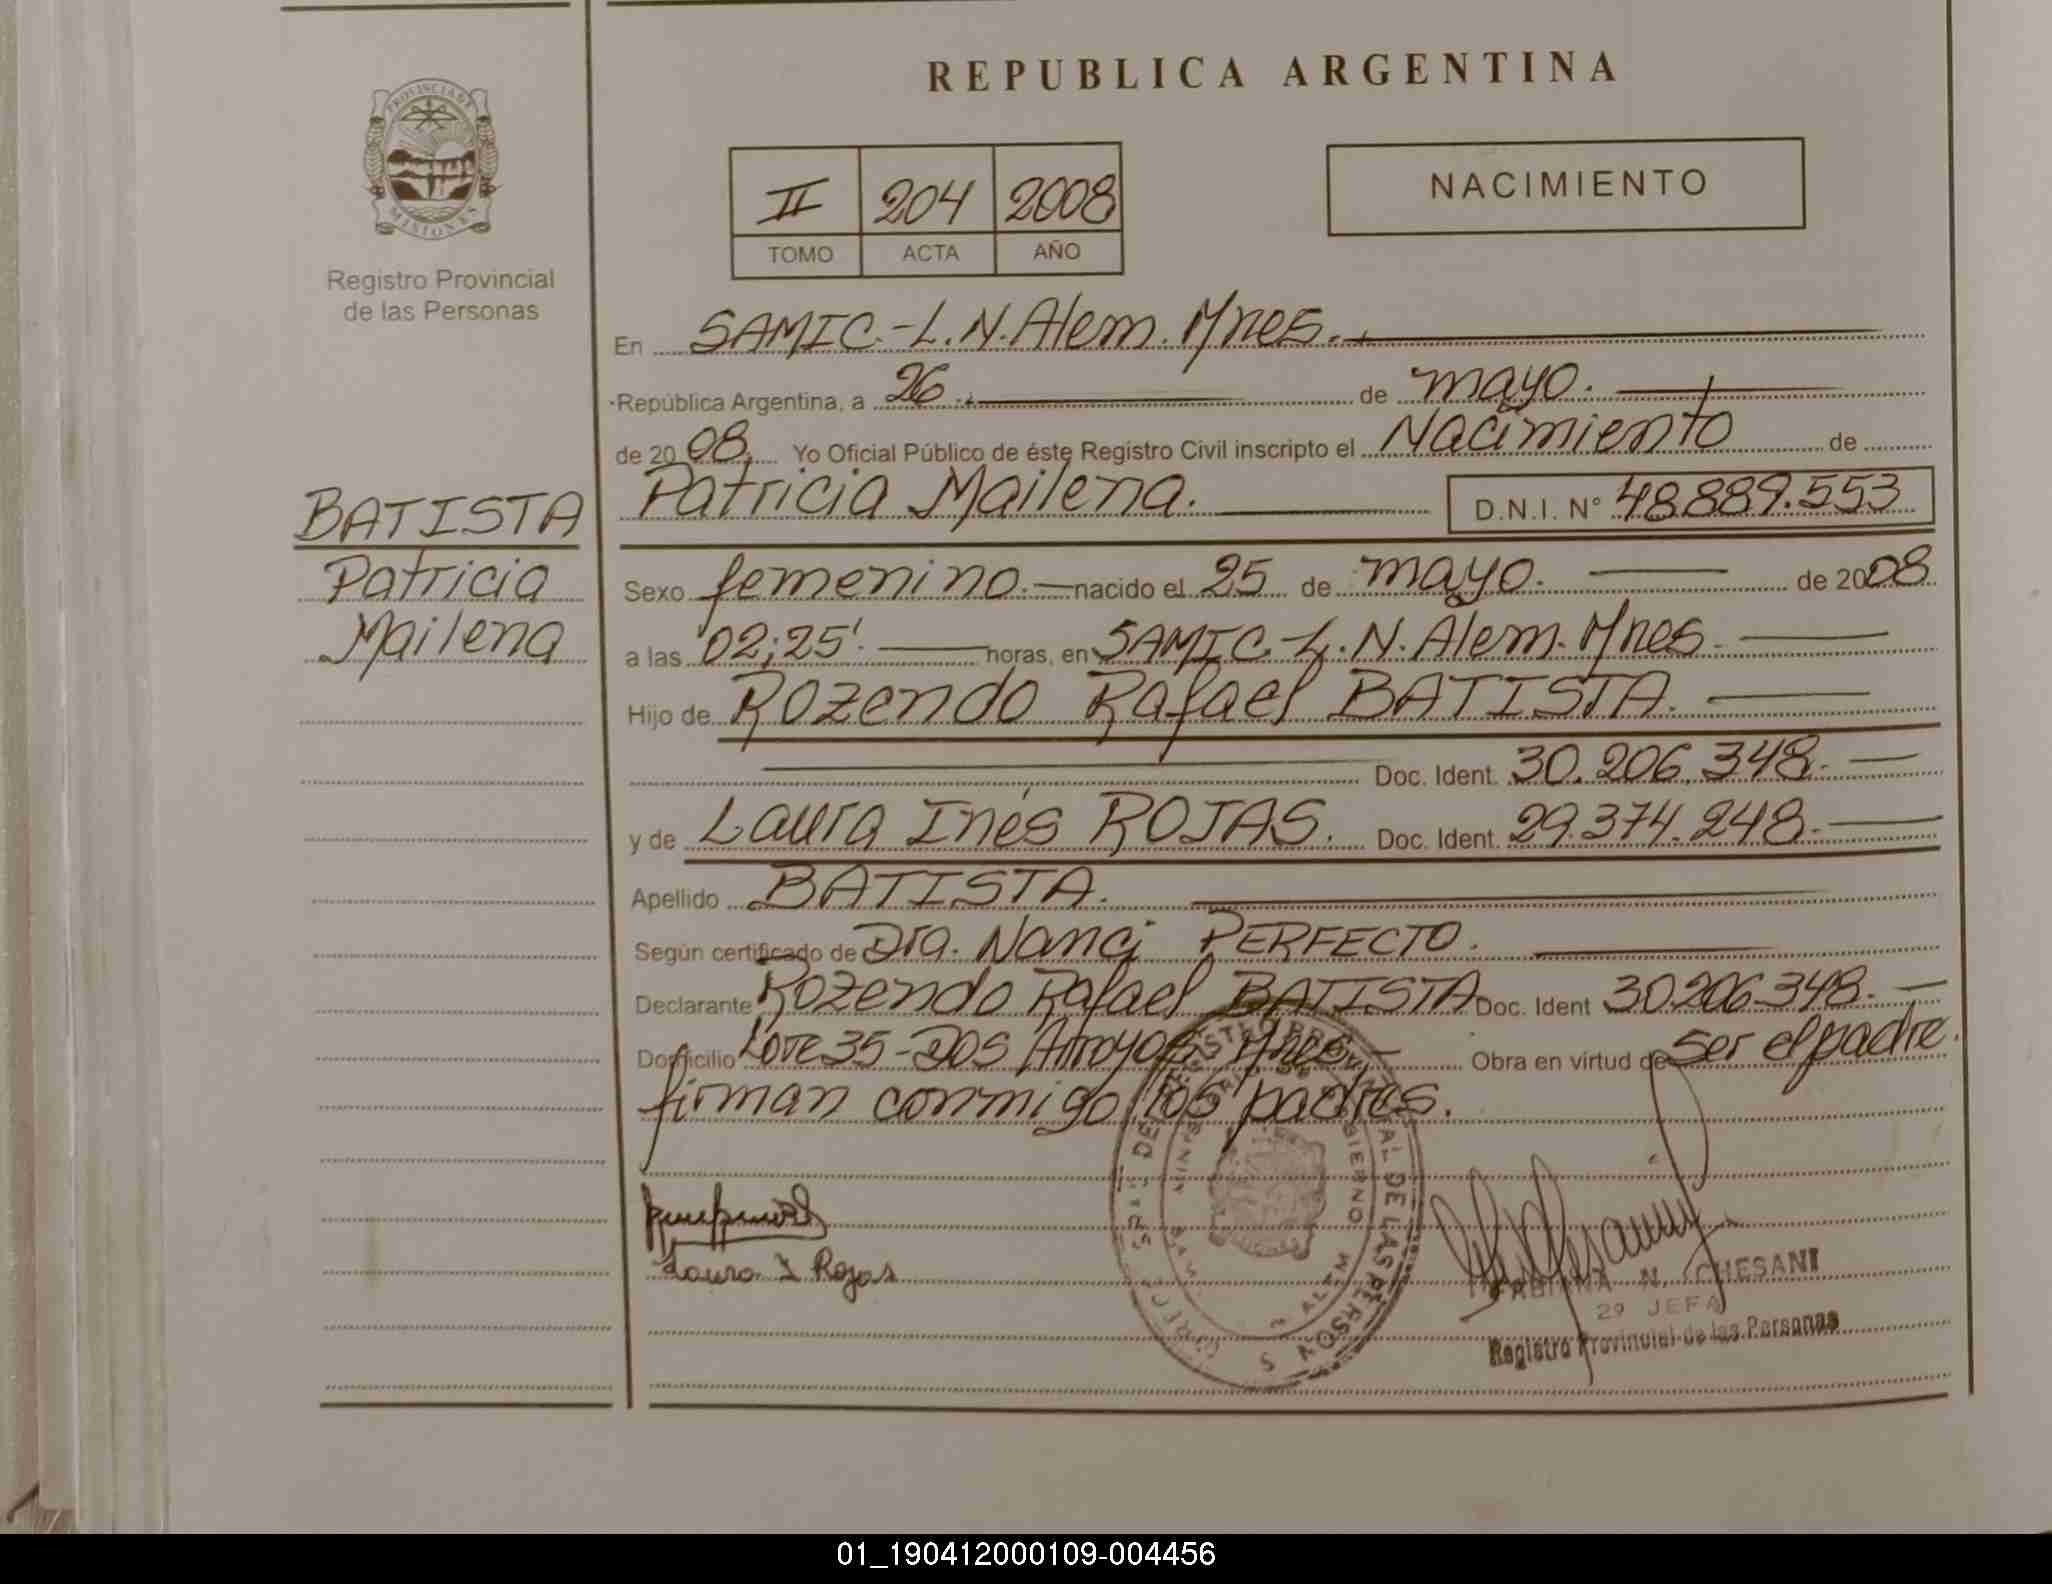 REPUBLICA ARGENTINA
PROVINCIA DE MISIONES
Registro Provincial
de las Personas
II 204 2008
TOMO ACTA AÑO
NACIMIENTO
En SAMIC.-L.N.Alem.Mnes.
República Argentina, a 26 de mayo.
de 2008. Yo Oficial Público de éste Registro Civil inscripto el Nacimiento de
Patricia Mailena. D.N.I. N° 48.889.553
BATISTA
Patricia
Mailena
Sexo femenino.- nacido el 25 de mayo. de 2008
a las 02;25'. horas, en SAMIC.-L.N.Alem.Mnes.
Hijo de Rozendo Rafael BATISTA.
Doc. Ident. 30.206.348.-
y de Laura Inés ROJAS. Doc. Ident. 29.374.248.-
Apellido BATISTA.
Según certificado de Dra. Nanci PERFECTO.
Declarante Rozendo Rafael BATISTA Doc. Ident 30.206.348.-
Domicilio Lote 35-Dos Arroyos Mnes.- Obra en virtud de ser el padre.
firman conmigo los padres.
Laura I Rojas
FABIANA N. CHESANI
2º JEFA
Registro Provincial de las Personas
01_190412000109-004456